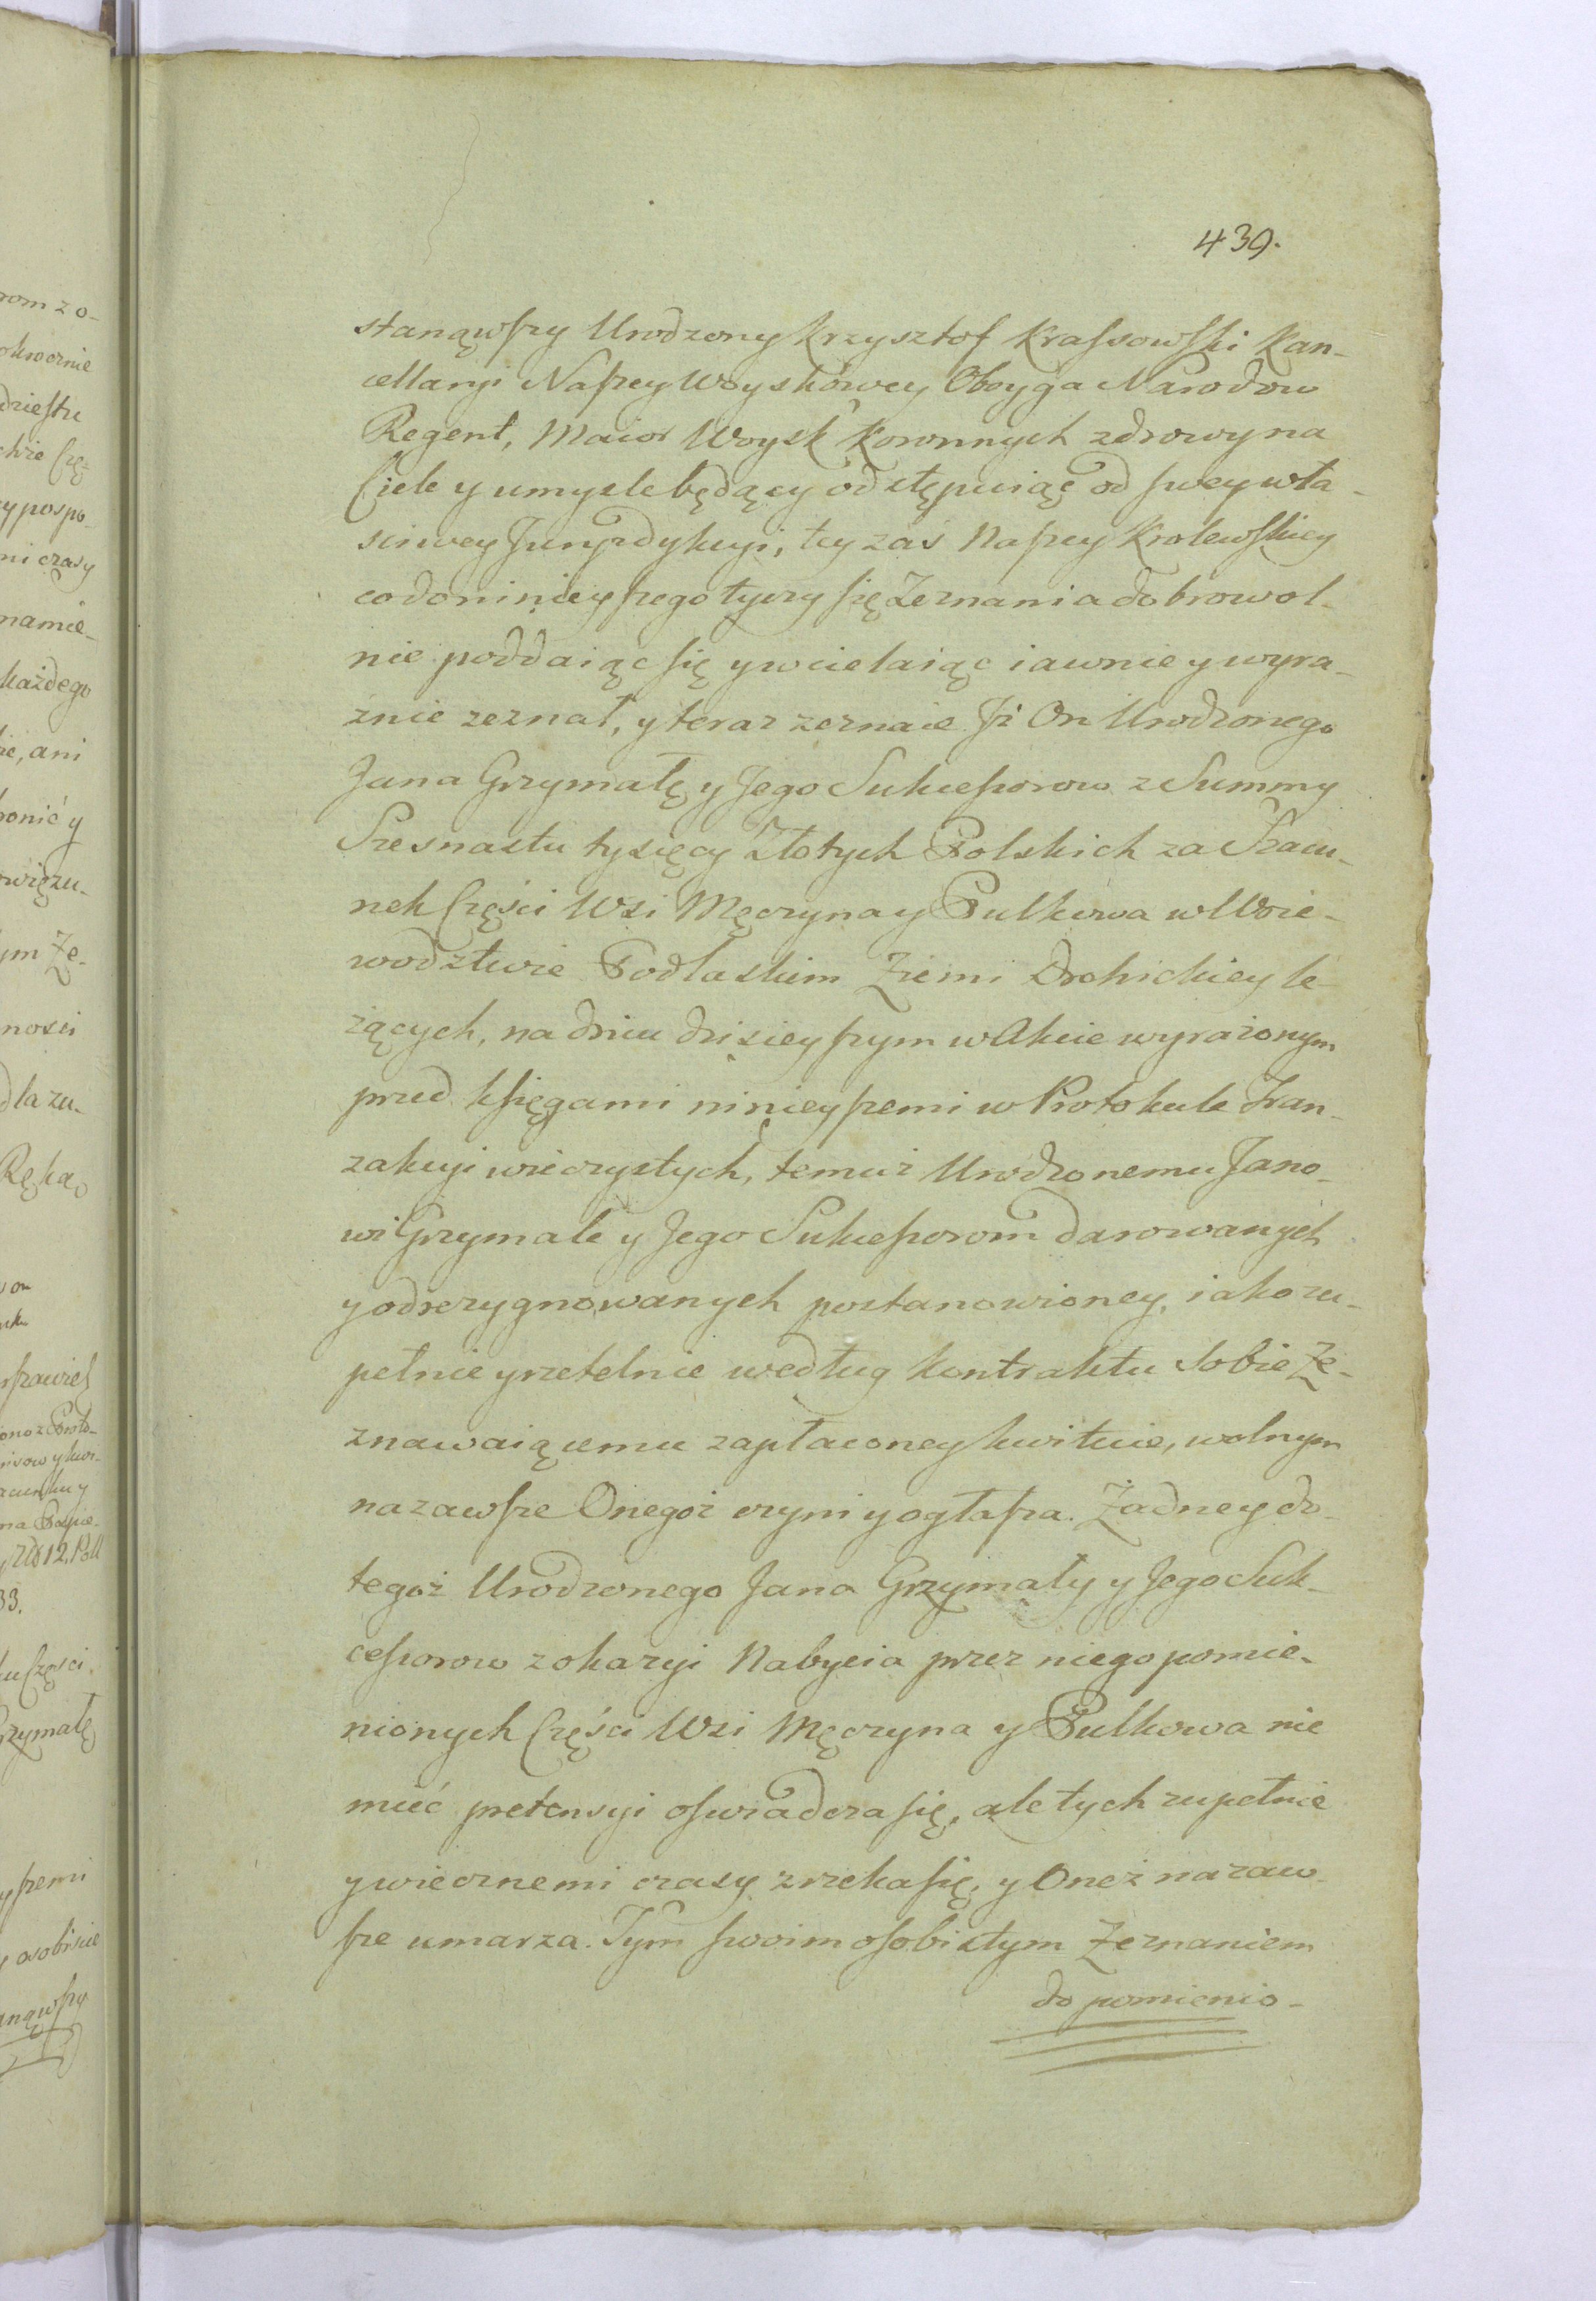 439.
stanąwszy Urodzony Krzysztof Krassowski Kan-
cellaryi Naszey Woyskowey Oboyga Narodow
Regent, Maior Woysk Koronnych zdrowy na
Ciele y umysle będący odstępuiąc od swey wła-
sciwey Juryzdykcyi, tey zaś Naszey Krolewskiey
co do ninieyszego tyczy się Zeznania dobrowol-
nie poddaiąc się y wcielaiąc iawnie y wyra-
znie zeznał, y teraz zeznaie Iż On Urodzonego
Jana Grzymałę y Jego Sukcessorow z Summy
Szesnastu tysięcy Złotych Polskich za Szacu-
nek Części Wsi Męczyna y Pulkowa w Woie-
wodztwie Podlaskim Ziemi Drohickiey le-
żących, na dniu dzisieyszym w Akcie wyrażonym
przed księgami ninieyszemi w Protokule Tran-
zakcyi wieczystych, temuż Urodzonemu Jano-
wi Grzymale y Jego Sukcessorom darowanych
y odrezygnowanych postanowioney, iako zu-
pełnie y rzetelnie według Kontraktu Sobie Ze-
znawaiącemu zapłaconey kwituie, wolnym
na zawsze Onegoż czyni y ogłasza. Żadney do
tegoż Urodzonego Jana Grzymały y Jego Suk-
cessorow z okazyi Nabycia przez niego pomie-
nionych Części Wsi Męczyna y Pulkowa nie
mieć pretensyi oswiadcza się, ale tych zupełnie
y wiecznemi czasy zrzeka się, y Oneż na zaw-
sze umarza. Tym swoim osobistym Zeznaniem
do pomienio-